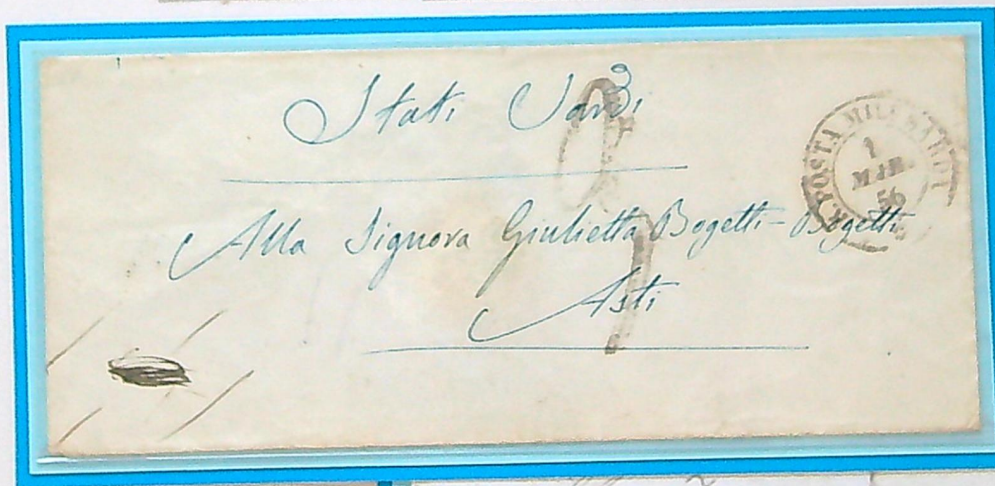 Stati Sardi
Alla Signora Giulietta Bogetti-Bogetti
Asti
R. POSTA MILRE SARDA
1
MAR.
56
2